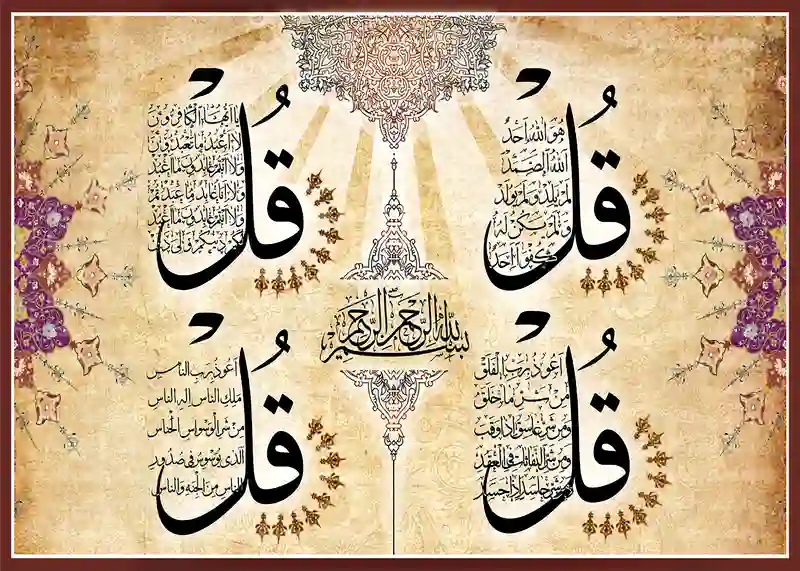 قُلْ
هُوَ اللهُ اَحَدٌ
اَللهُ الصَّمَدُ
لَمْ يَلِدْ وَلَمْ يُولَدْ
وَلَمْ يَكُنْ لَهُ
كُفُوًا اَحَدٌ
قُلْ
يَا اَيُّهَا الْكَافِرُونَ
لَا اَعْبُدُ مَا تَعْبُدُونَ
وَلَا اَنْتُمْ عَابِدُونَ مَا اَعْبُدُ
وَلَا اَنَا عَابِدٌ مَا عَبَدْتُمْ
وَلَا اَنْتُمْ عَابِدُونَ مَا اَعْبُدُ
لَكُمْ دِينُكُمْ وَلِيَ دِينِ
بسم الله الرحمن الرحيم
قُلْ
اَعُوذُ بِرَبِّ الْفَلَقِ
مِنْ شَرِّ مَا خَلَقَ
وَمِنْ شَرِّ غَاسِقٍ اِذَا وَقَبَ
وَمِنْ شَرِّ النَّفَّاثَاتِ فِي الْعُقَدِ
وَمِنْ شَرِّ حَاسِدٍ اِذَا حَسَدَ
قُلْ
اَعُوذُ بِرَبِّ النَّاسِ
مَلِكِ النَّاسِ اِلٰهِ النَّاسِ
مِنْ شَرِّ الْوَسْوَاسِ الْخَنَّاسِ
اَلَّذِي يُوَسْوِسُ فِي صُدُورِ
النَّاسِ مِنَ الْجِنَّةِ وَالنَّاسِ